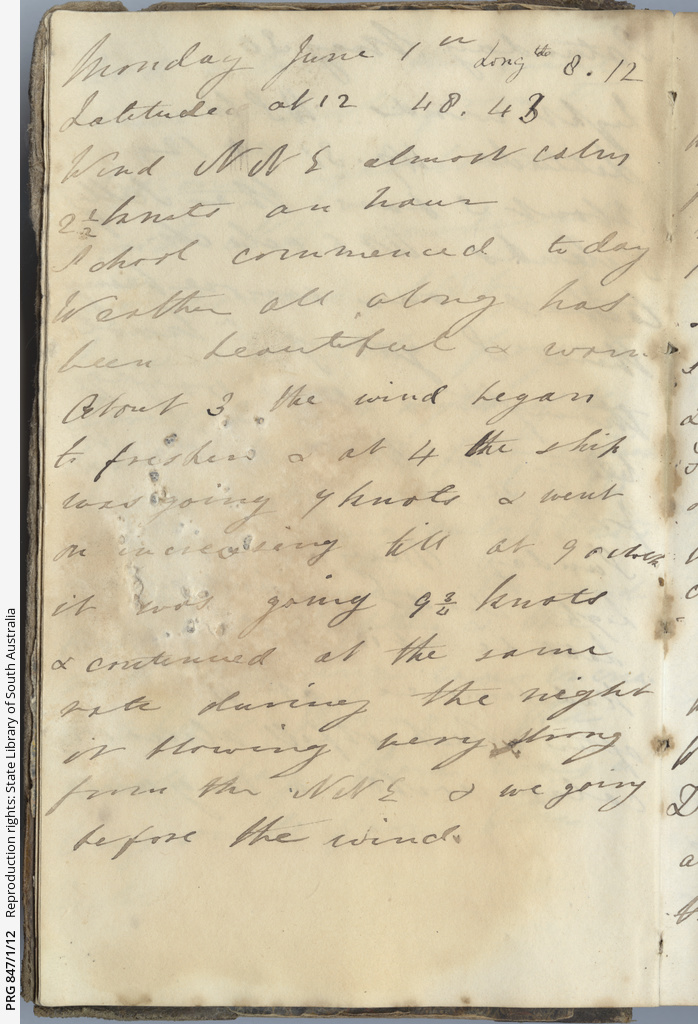 Monday June 1st Longtde 8.12
Latitude at 12 48.43
Wind NNE almost calm
2 1/2 knots an hour
School commenced today
Weather all along has
been beautiful & warm
About 3 the wind began
to freshen & at 4 the ship
was going 7 knots & went
on increasing till at 9 oclock
it was going 9 3/4 knots
& continued at the same
rate during the night
it blowing very strong
from the NNE & we going
before the wind.
PRG 847/1/12 Reproduction rights: State Library of South Australia